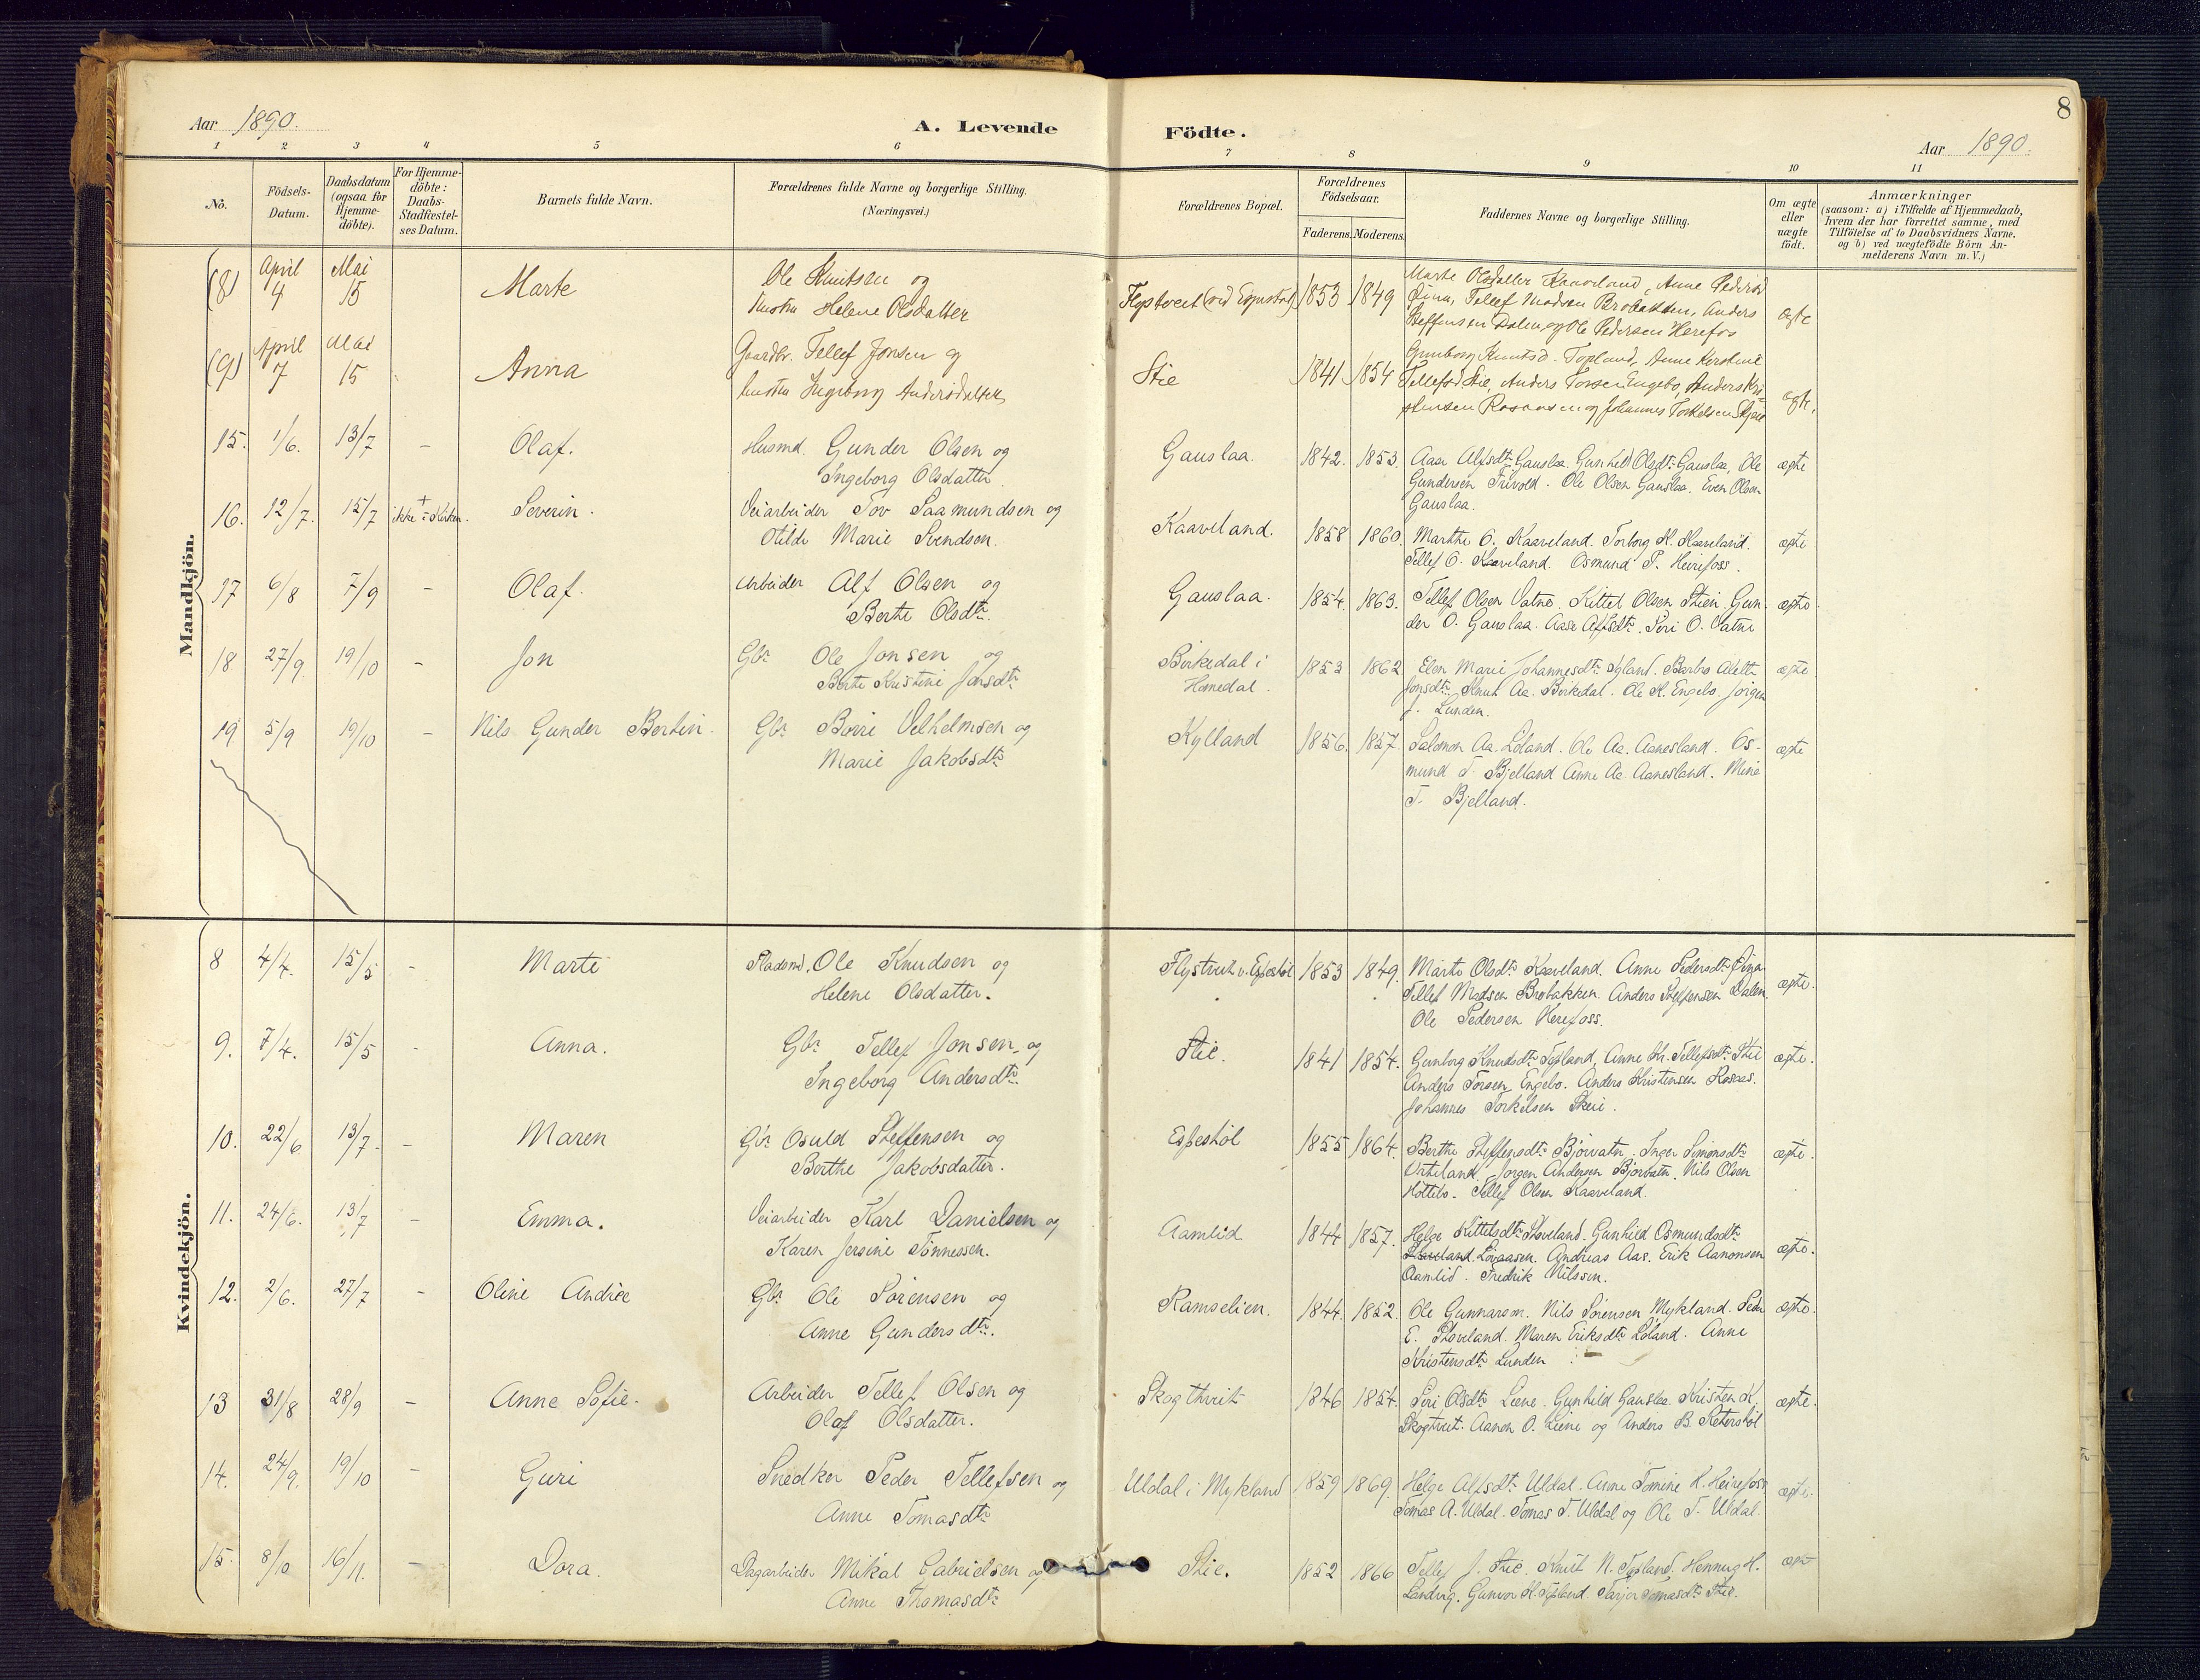 8
Aar 1890. A. Levende Födte. Aar 1890.
1 2 3 4 5 6 7 8 9 10 11
No. Födsels-Datum. Daabsdatum (ogsaa for Hjemme-döbte). For Hjemme-döbte: Daabs-Stadfæstel-ses Datum. Barnets fulde Navn. Forældrenes fulde Navne og borgerlige Stilling. (Næringsvei.) Forældrenes Bopæl. Forældrenes Födselsaar. Faderens. Moderens. Faddernes Navne og borgerlige Stilling. Om ægte eller uægte födt. Anmærkninger (saasom: a) i Tilfælde af Hjemmedaab, hvem der har forrettet samme, med Tilföielse af to Daabsvidners Navne. og b) ved uægtefödte Börn An-melderens Navn m. V.)
Mandkjön.
(8) April 4 Mai 15 Marte Ole Knutsen og 1853 1849 Marte Olsdatter Kaaveland, Anne Pedersd
Hustru Helene Olsdatter Tellef Madsen Brobakken, Anders
Steffensen Dalen og Ole Pedersen Herefos ægte
(9) April 7 Mai 15 Anna Gaardbr. Tellef Jonsen og Stie 1841 1854 Gunborg Knutsd. Topland, Anne Kirstine
Hustru Ingeborg Andersdatter Tellefsd Stie, Anders Torsen Engebo, Anders Kri-
stensen Rosaas og Johannes Torkelsen ægte,
15. 1/6. 13/7 - Olaf. Husmd. Gunder Olsen og Gauslaa. 1842. 1853. Aase Alfsdtr Gauslaa. Gunhild Olsdtr Gauslaa, Ole ægte
Ingeborg Olsdatter. Gundersen Trivold. Ole Olsen Gauslaa. Even Olsen
Gauslaa.
16. 12/7. 15/7 + ikke i Kirken. Severin. Veiarbeider Tov Saamundsen og Kaaveland. 1858 1860. Marthe O. Kaaveland. Torborg K. Kaaveland. ægte
Otilde Marie Svendsen. Tellef O. Kaaveland. Osmund T. Heirefoss.
17 6/8 7/9 - Olaf. Arbeider Alf Olsen og Gauslaa. 1854. 1863. Tellef Olsen Vatne. Kittel Olsen Stien. Gun- ægte
Berthe Olsdtr. der O. Gauslaa. Aase Alfsdtr. Siri O. Vatne
18 27/9. 19/10 - Jon Gbr Ole Jonsen og Birkedal i 1853 1862 Elen Marie Johannesdtr Igland. Barbro Alette ægte
Berte Kristine Jonsdtr Homedal. Jonsdtr. Knut Aa. Birkdal. Ole K. Engebo. Jörgen
J. Lunden.
19 5/9 19/10 - Nils Gunder Bertin. Gbr Börre Velhelmsen og Kylland 1856. 1857. Salomon Aa. Löland. Ole Aa. Aanesland. Os- ægte
Marie Jakobsdtr mund T. Bjelland Anne Aa. Aanesland. Mina
T. Bjelland.
Kvindekjön.
8 4/4. 15/5 - Marte Pladsmd. Ole Knudsen og 1853 1849. Marte Olsdtr Kaaveland. Anne Pedersdtr
Helene Olsdatter. Tellef Madsen Brobakken. Anders Steffensen Dalen. ægte.
Ole Pedersen Herefoss.
9. 7/4. 15/5 - Anna. Gbr Tellef Jonsen og Stie. 1841 1854. Gunborg Knudsdtr Topland, Anne Kr. Tellefsdtr Stie ægte.
Ingeborg Andersdtr. Anders Torsen Engebo. Anders Kristensen Rosaas.
Johannes Torkelsen Skeie.
10. 22/6 13/7. - Maren Gbr Osuld Steffensen og Espestöl 1855 1864. Berthe Steffensdtr Bjorvatn. Inger Simonsdtr ægte.
Berthe Jakobsdatter. Jörgen Andersen Bjorvatn. Nils Olsen
Tellef Olsen Kaaveland.
11. 24/6. 13/7 - Emma. Veiarbeider Karl Danielsen og Aamlid 1844 1857. Helge Kittelsdtr Hoveland. Gunhild Osmundsdtr
Karen Jersine Tönnessen. Lövaasen. Andreas Aas. Erik Aanonsen ægte.
Aamlid. Fredrik Nilssen.
12. 2/6. 27/7 - Oline Andrée Gbr Ole Sörensen og Ramselien. 1844. 1852. Ole Gunnarsm. Nils Sörensen Mykland. Peder ægte.
Anne Gundersdtr. E. Maren Eriksdtr Löland. Anne
Kristensdtr Lunden
13 31/8 28/9 - Anne Sofie. Arbeider Tellef Olsen og Skogthveit 1846 1854. Siri Olsdtr Liene. Gunhild Gauslaa. Kristen K. ægte.
Olaf Olsdatter. Skogtveit. Aanon O. Liene og Anders B. Retterstöl
14. 24/9. 19/10 - Guri Snedker Peder Tellefsen og Uldal i Mykland 1859 1869. Helge Alfsdtr Uldal. Anne Tomine K. Heirefoss ægte.
Anne Tomasdtr Tomas A. Uldal. Tomas T. Uldal og Ole T. Uldal.
15. 8/10 16/11. - Dora. Dagarbeider Mikal Gabrielsen og Stie. 1852 1866 Tellef J. Stie. Knut N. Topland. Henning H.
Anne Thomasdtr Landvig. Gunvor K. Topland. Tarjer Tomasdtr Stie.